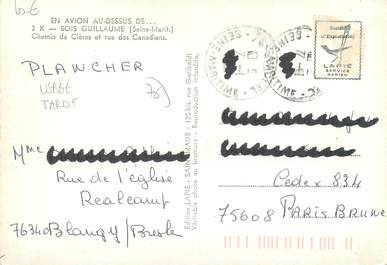 10€
EN AVION AU-DESSUS DE...
2 K — BOIS GUILLAUME (Seine-Marit.)
Chemin de Clères et rue des Canadiens.
PLANCHER
USAGE
TARDIF
Mme
Rue de l'église
Realcamp
76340 Blangy/Bresle
Edition LAPIE - SAINT-MAUR - 125 bis, rue Garibaldi
Véritable photo au bromure - Reproduction interdite.
SEINE MARITIME
LAPIE
SERVICE
AERIEN
Cedex 834
75608 PARIS BRUNE